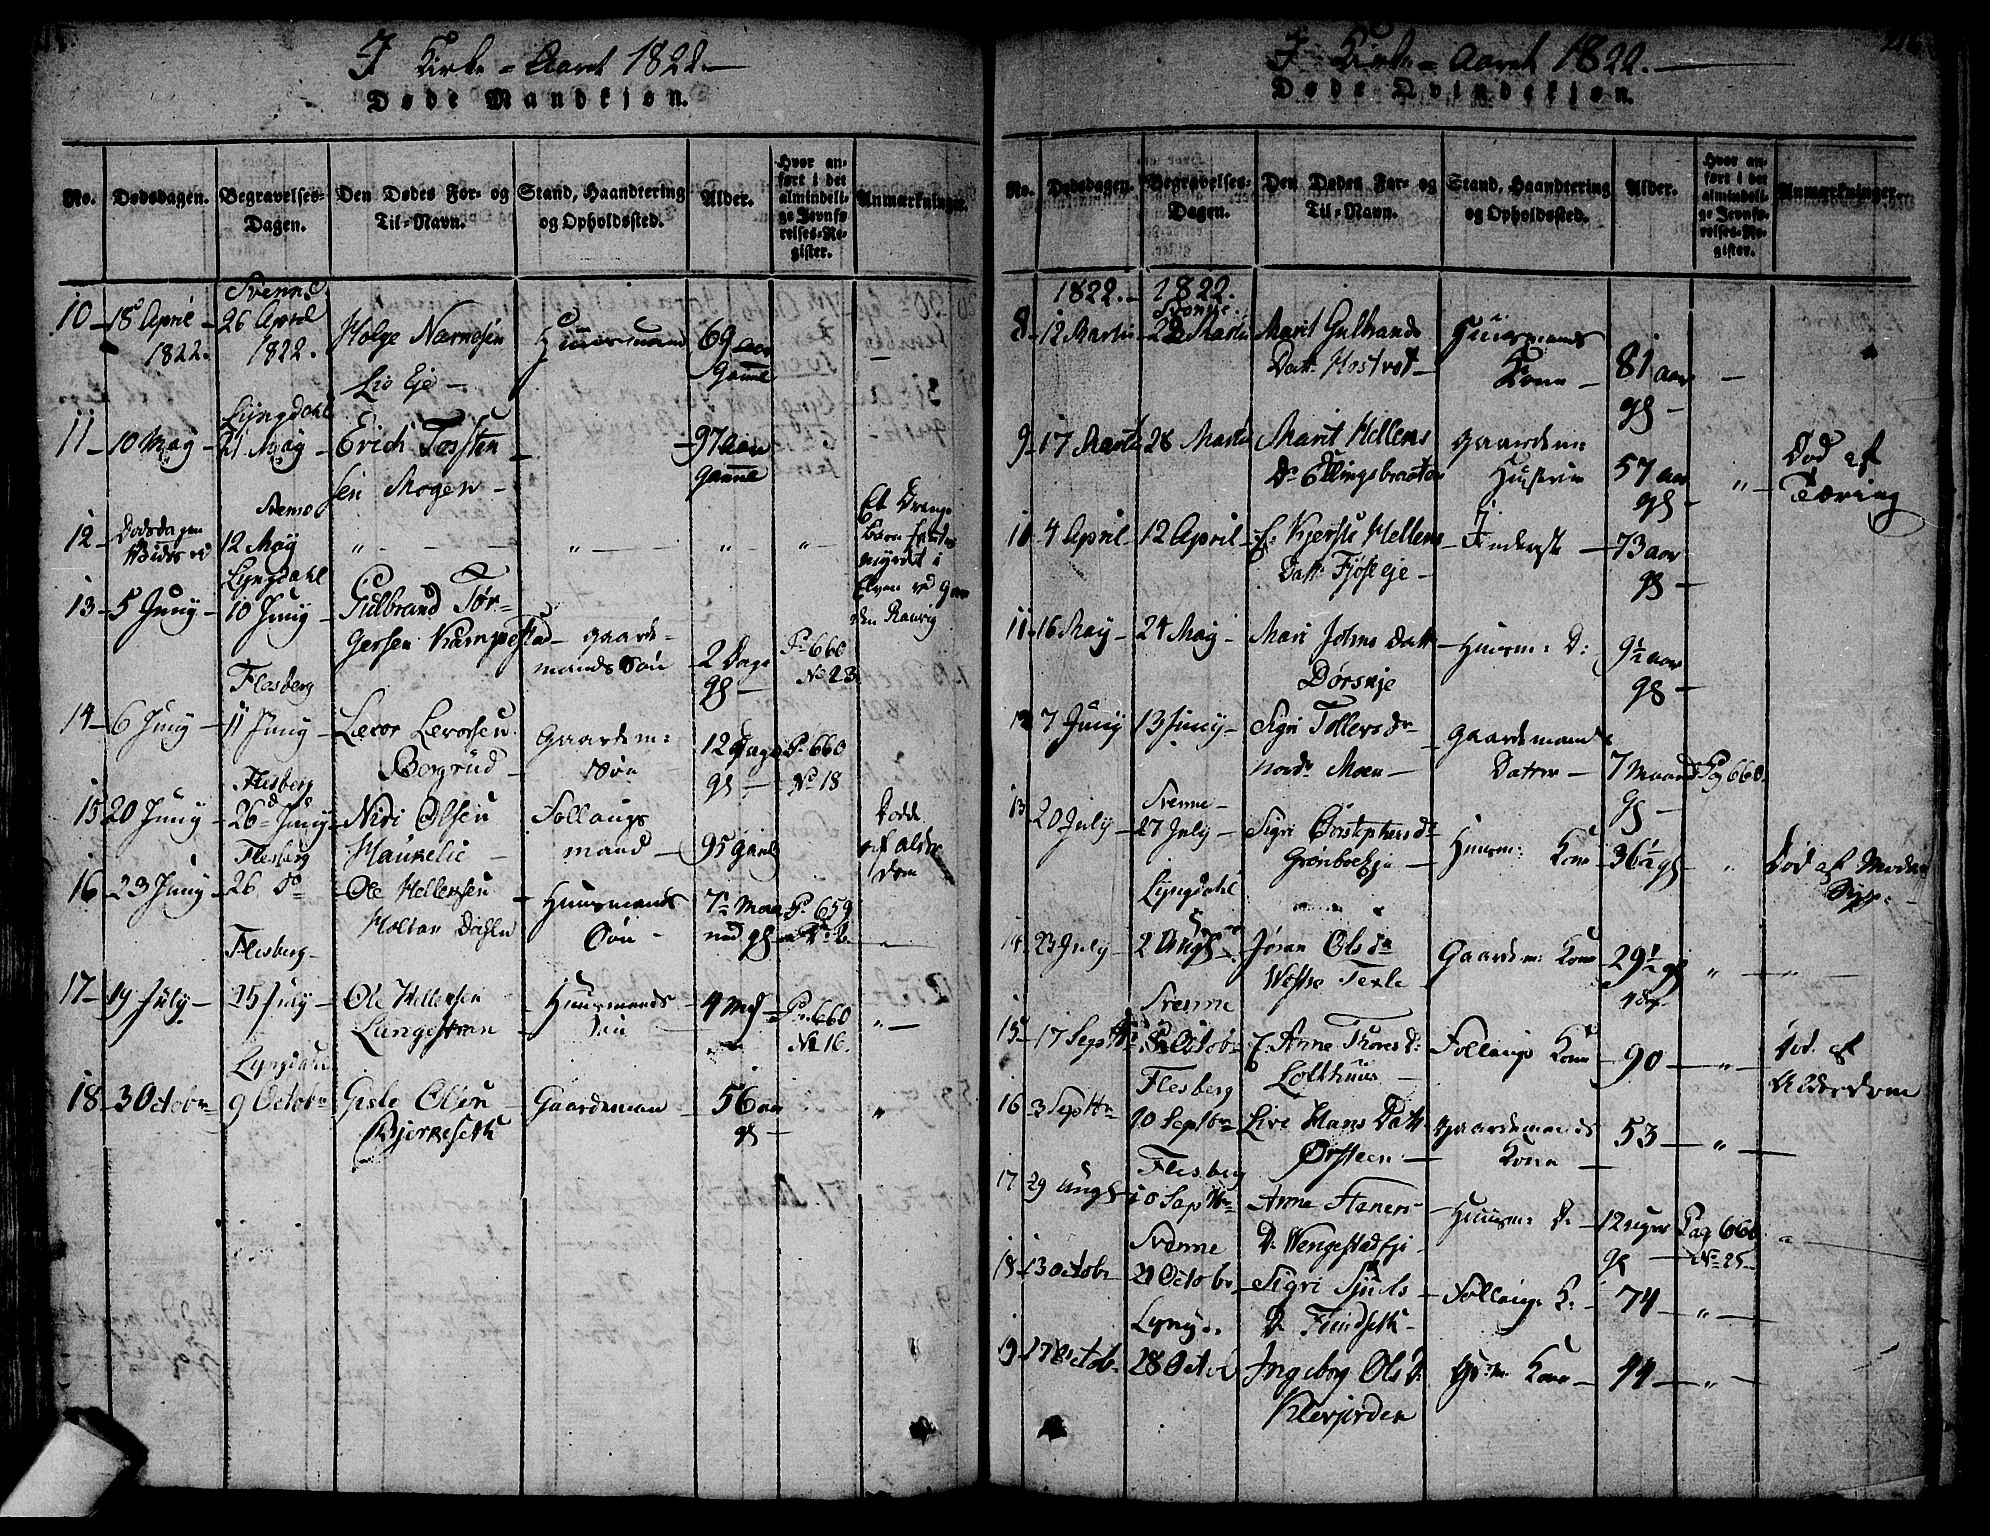 I Kirke-Aaret 1822.
Døde Mandkjøn.
No.
Dødsdagen.
Begravelses-
Dagen.
Den Dødes For- og
Til-Navn.
Stand, Haandtering
og Opholdssted.
Alder.
Hvor an-
ført i det
almindeli-
ge Jevnfø-
relses-Re-
gister.
Anmærkninger.
10 18 April 1822.
Svenne
26 April
1822.
Holge
Lio Eje
Huusmand
69 aar
Gamle
11 10 May
Lyngdahl
21 May
Erich Torsten
sen Mogen
97 aar
Gamle
12 Dødsdagen
Svene
12 May
Et Drenge
Barn fandtes
myrdet i
Elven ved Gaar
den
13 5 Juny
Lyngdahl
10 Juny
Gulbrand Tor-
gersen Kampestad
Gaard-
mands Søn
2 Dage
gl
P. 660
No 23
14 6 Juny
Flesberg
11 Juny
Levor Levorsen
Bergrud
Gaardm:
Søn
12 Dage
gl
P. 660
No 18
15 20 Juny
Flesberg
26 Juny
Niri Olsen
Haukelie
Follaugs
mand
95 gaml
Døde
af alder
dom
16 23 Juny
Flesberg
26 Do
Ole Hellersen
Holtan
Huusmands
Søn
P. 659
17 19 July
Flesberg
25 July
Ole Hellersen
Langestran
Huusmands
Søn
4 Md
P. 660
No 16.
18 3 Octobr
Lyngdal
9 Octobr
Gisle Olsen
Bjerkeseth
Gaardeman
56 aar
gl
I Kirke-Aaret 1822.
Døde Qvindekjøn.
No.
Dødsdagen.
Begravelses-
Dagen.
Den Dødes For- og
Til-Navn.
Stand, Haandtering
og Opholdssted.
Alder.
Hvor an-
ført i det
almindeli-
ge Jevnfø-
relses-Re-
gister.
Anmærkninger.
1822. 1822.
8 12 Martii
Svenne
28 Martii
Marit Gulbrands
Datt. Hostvet
Huusmands
Kone
81 aar
gl
9 17 Martii
28 Martii
Marit Hellens
Dr Ellingsbraaten
Gaardem:
Hustrue
57 aar
gl
Død af
Tæring
10 4 April
12 April
Kjersti Hellens
Datt. Fjøseje
Inderste
73 aar
gl
11 16 May
24 May
Mari Johns Datt
Huusm: D:
9½ aar
gl
12 7 Juny
13 Juny
Sigri Tollers dr
nord. Moen
Gaardsmands
Datter
7 Maand
gl
Pag 660.
13 20 July
Svenne
27 July
Sigri
Huusm: Kone
36½ gl
Død af
14 23 July
Lyngdahl
2 Augs
Jøran Ols dr
Westre Texle
Gaardm: Kone
29½ gl
15 17 Septbr
Svenne
Octobr
Anne Thores d:
Lofthuus
Follaugs Kone
90
Død af
Alderdom
16 3 Septbr
Flesberg
10 Septbr
Live Hans Datt
Ørsteen
Gaardemands
Kone
53
17 29 Augs
Flesberg
10 Septbr
Anne
D. Wengestadeje
Huusm: D:
12 uger
gl
Pag 660
No 25
18 13 Octobr
Svenne
21 Octobr
Sigri Sjuls
D. Fundseth
Follaugs K:
74
19 17 Octob
Lyng d.
28 Octob
Ingeborg Ols D:
Kleviorden
Kone
44